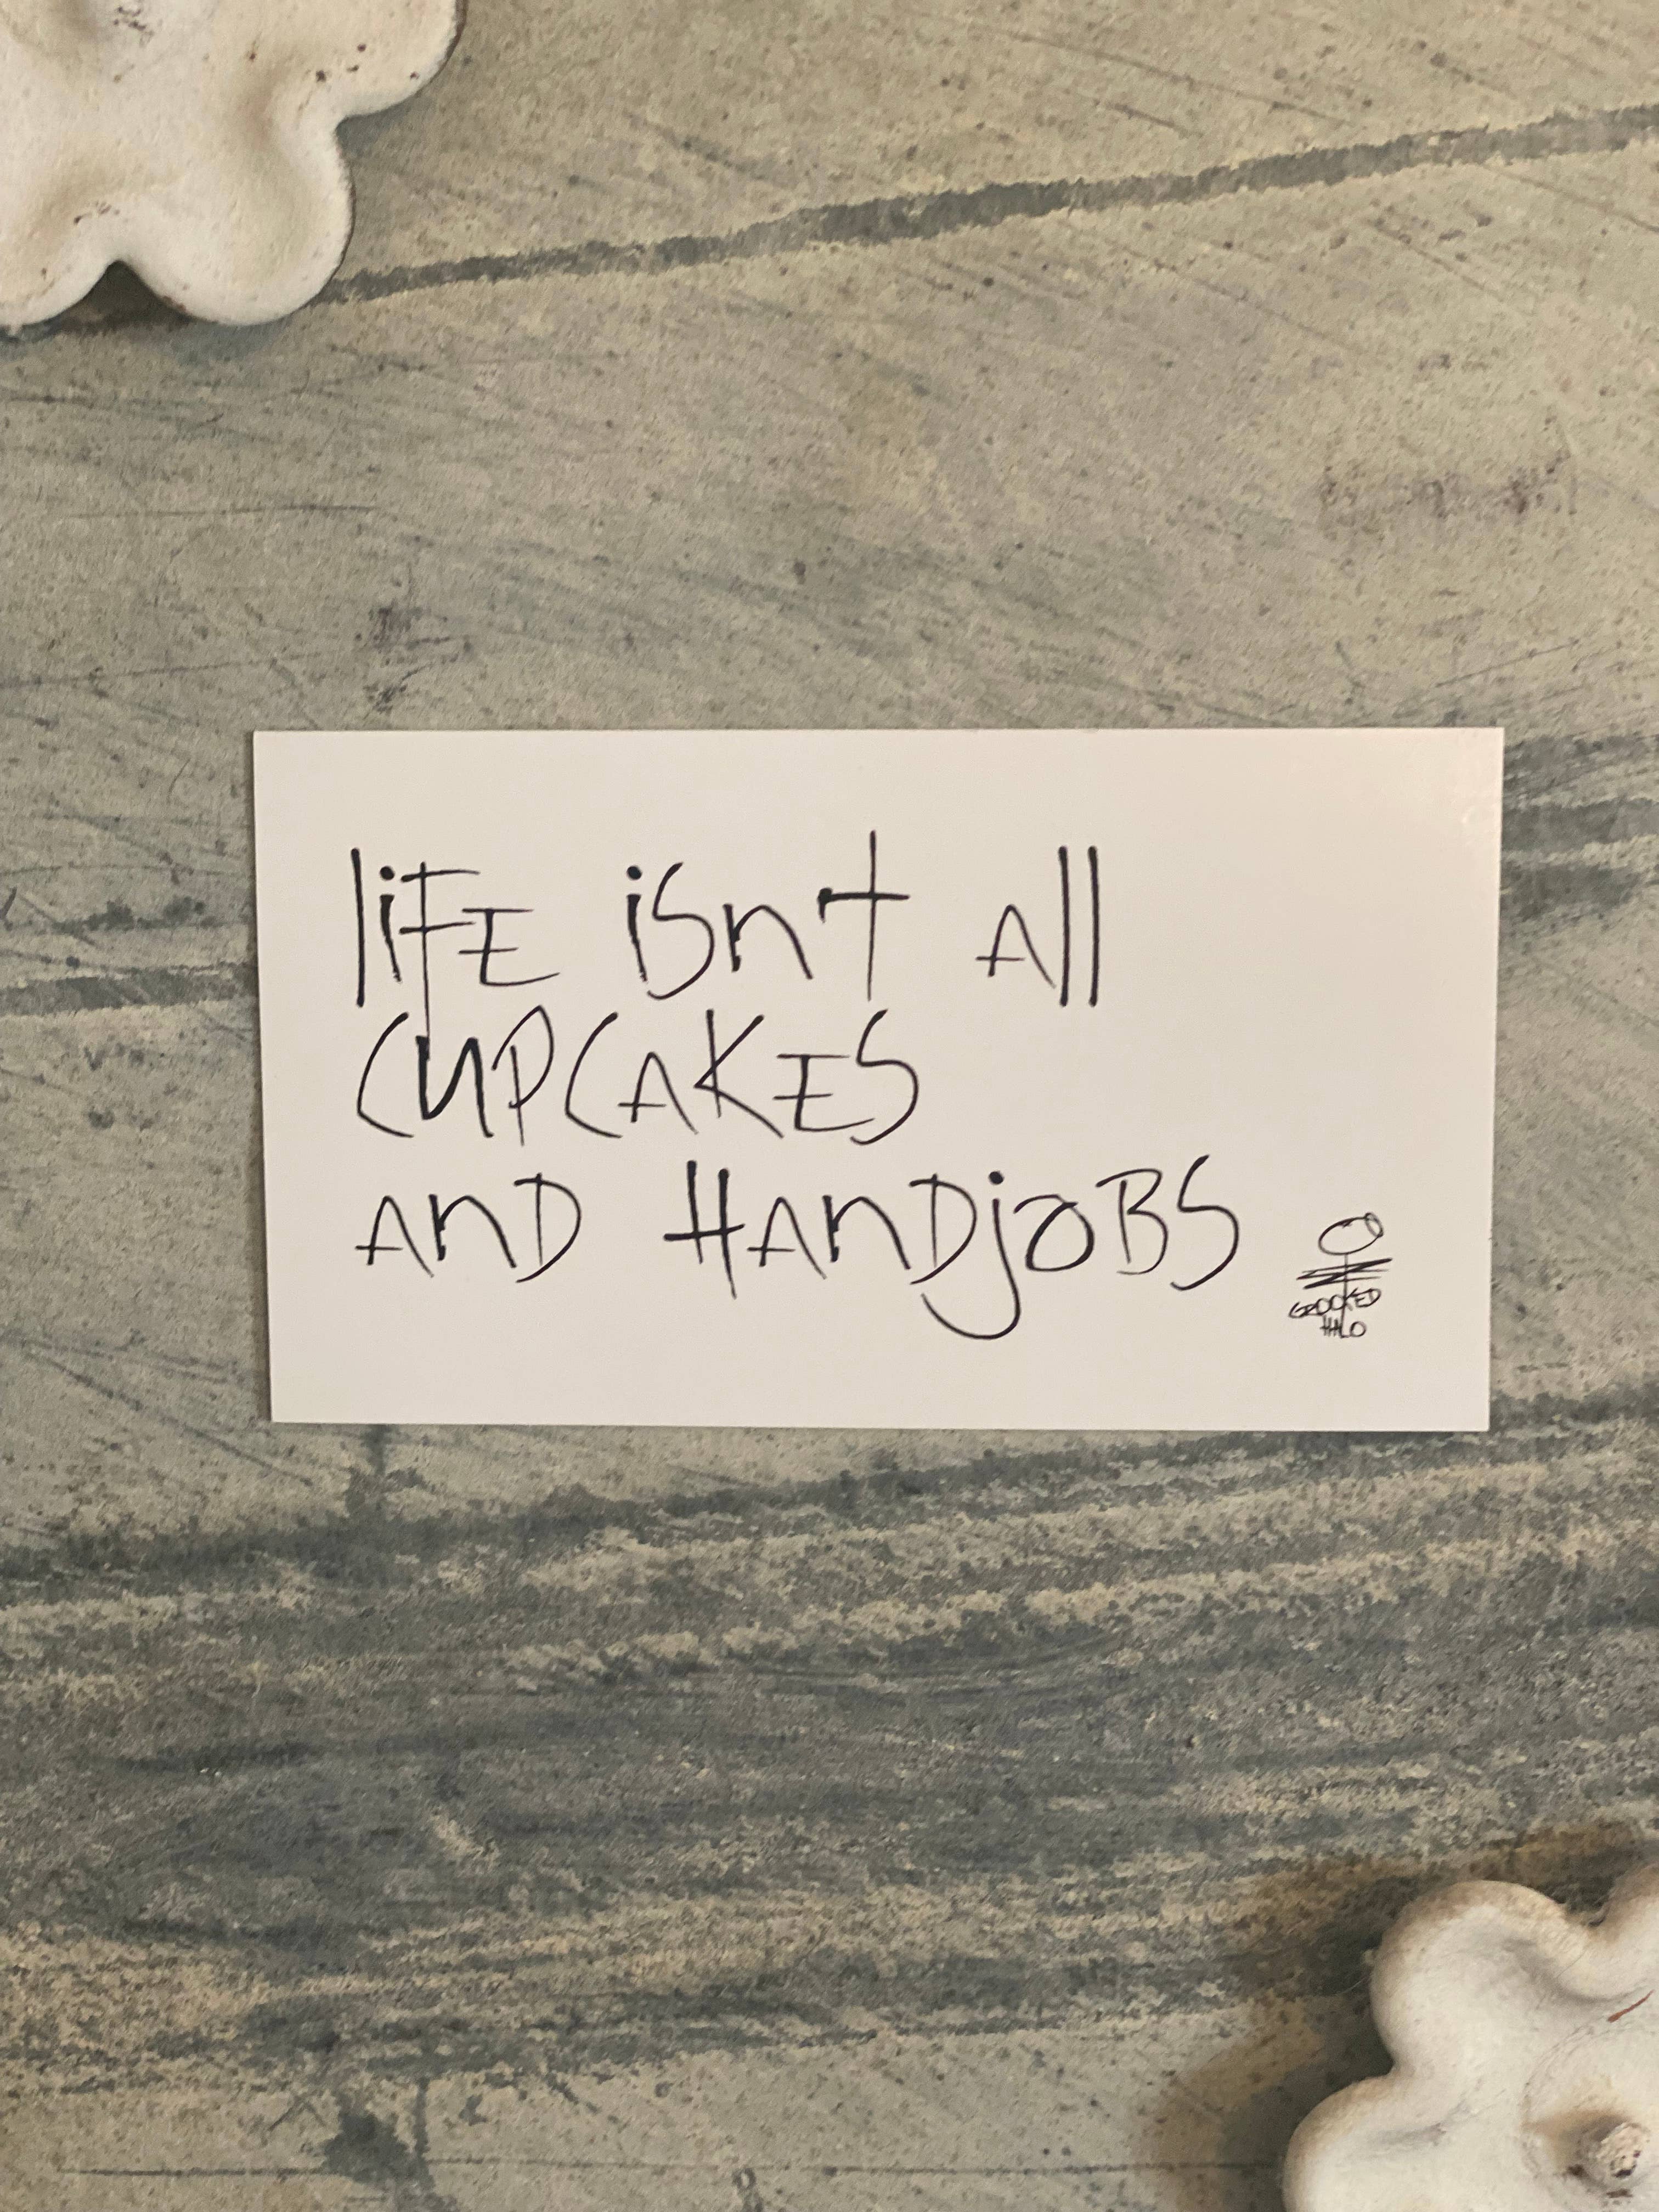 liFE isn't All
CUPCAKES
AND HANDjOBS
CROOKED
HALO